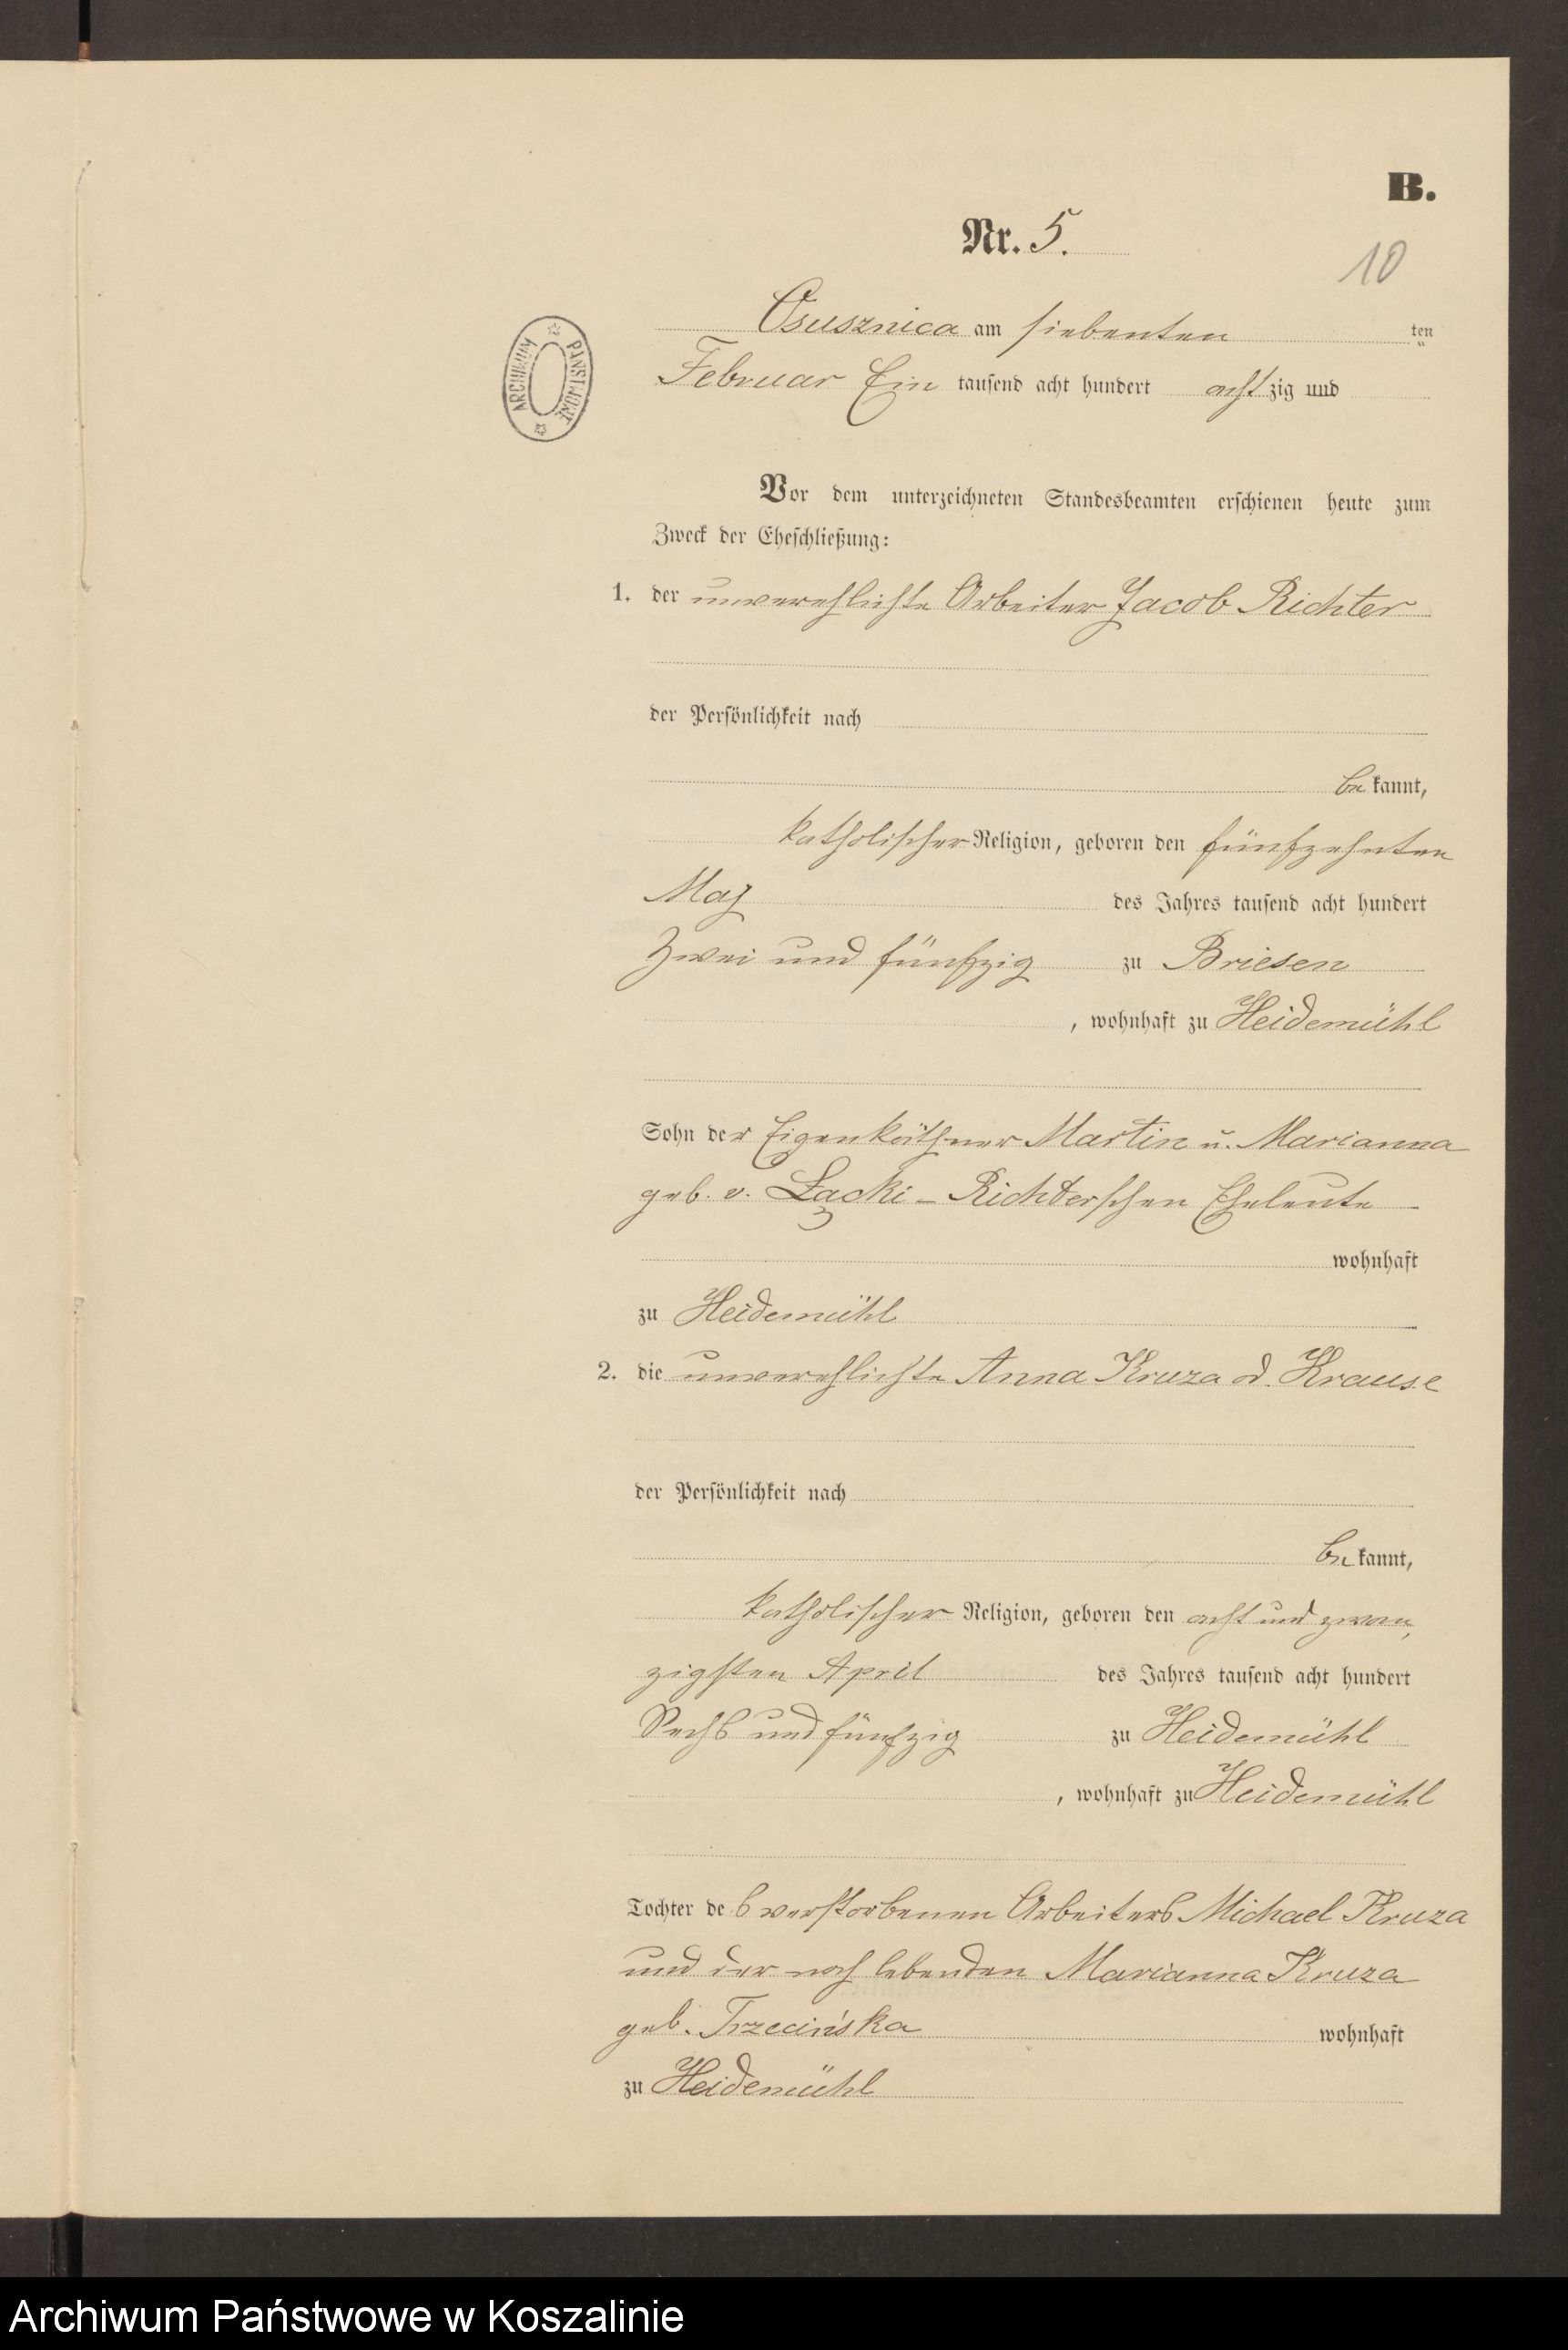 B.
Nr. 5.
10
Osusznica am siebenten ten
Februar Ein tausend acht hundert achtzig und
ARCHIWUM PAŃSTWOWE
Vor dem unterzeichneten Standesbeamten erschienen heute zum
Zweck der Eheschließung:
1. der unverehlichte Arbeiter Jacob Richter
der Persönlichkeit nach
bekannt,
katholischer Religion, geboren den fünfzehnten
Maj des Jahres tausend acht hundert
Zwei und fünfzig zu Briesen
, wohnhaft zu Heidemühl
Sohn der Eigenkäthner Martin u. Marianna
geb. v. Łącki - Richterschen Eheleute
wohnhaft
zu Heidemühl
2. die unverehlichte Anna Kruza od. Krause
der Persönlichkeit nach
bekannt,
katholischer Religion, geboren den acht und zwan,
zigsten April des Jahres tausend acht hundert
Sechs und fünfzig zu Heidemühl
, wohnhaft zu Heidemühl
Tochter des verstorbenen Arbeiters Michael Kruza
und der noch lebenden Marianna Kruza
geb. Trzecińska wohnhaft
zu Heidemühl
Archiwum Państwowe w Koszalinie